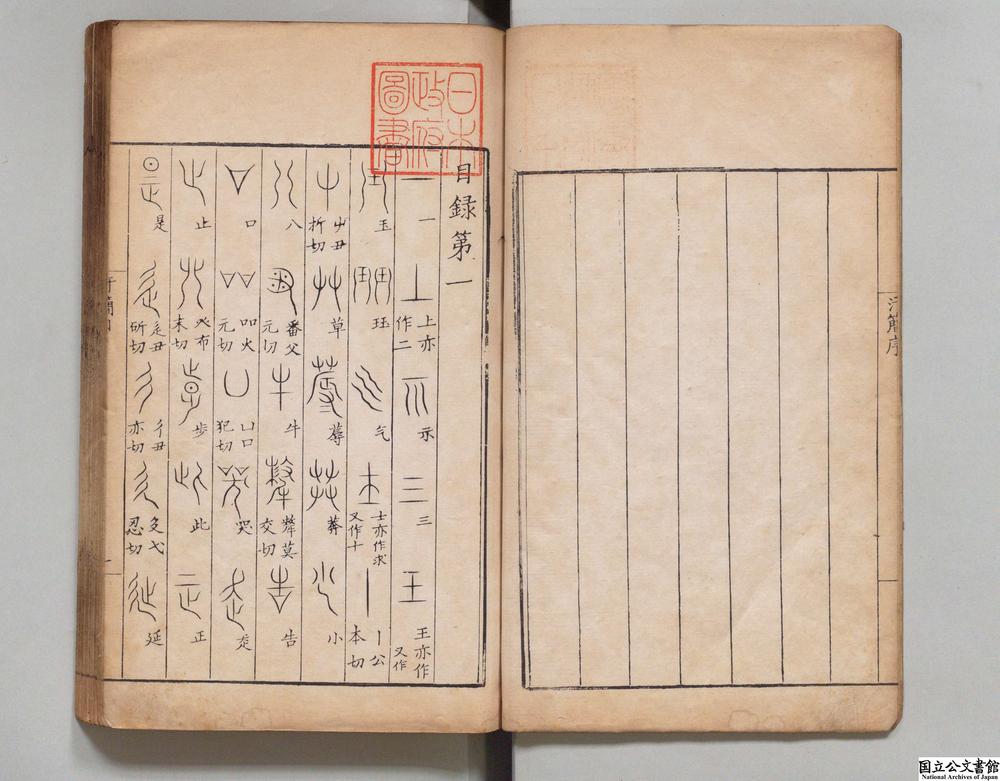 汗簡序
日本
政府
圖書
目録第一
一 一 丄 上亦作二 示 三 三 王 王亦作 又作
玉 玨 气 士亦作求又作十 丨 丨公本切
屮 屮丑折切 艸 草 蓐 茻 葬 小
八 番父元切 牛 犛莫交切 告
口 吅火元切 凵 凵口犯切 哭 走
止 癶布末切 步 此 正
是 辵丑斫切 彳 彳丑亦切 廴弋忍切 延
国立公文書館
National Archives of Japan